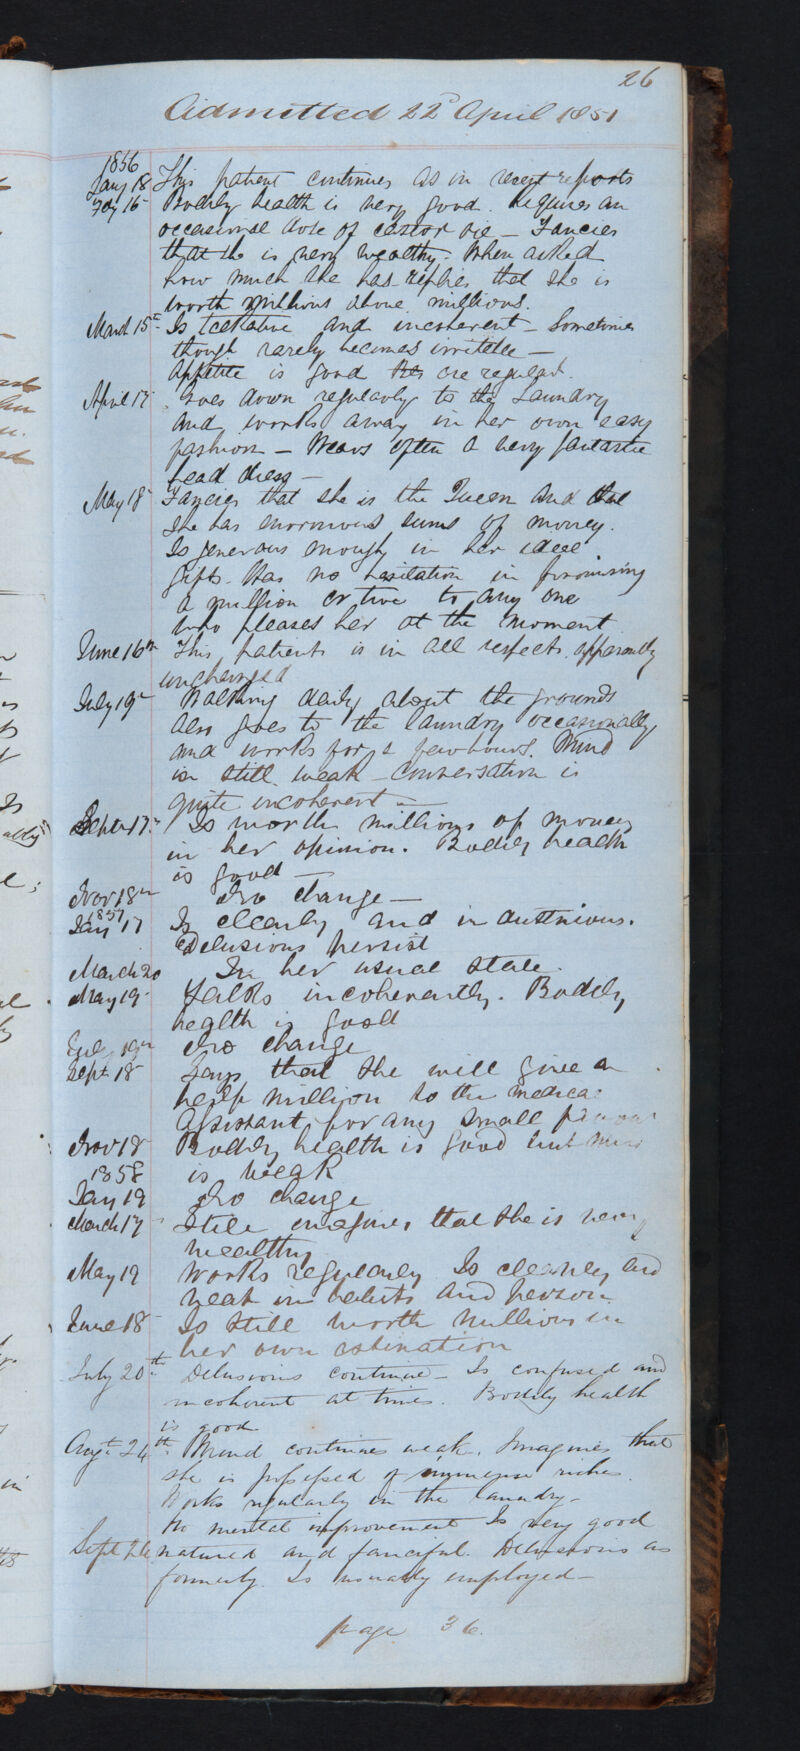 26
Admitted 22d April 1851
1856
Jany 18 This patient continues as in recent reports
Feby 16 Bodily health is very good. Requires an
occasional dose of castor oil – Fancies
that she is very wealthy. When asked
how much she has replies that she is
worth millions above millions.
March 15th Is talkative and incoherent – Sometimes
though rarely becomes irritable –
Appetite is good are regular.
April 17 Goes down regularly to the Laundry
and works away in her own easy
fashion – Wears often a very fantastic
head dress –
May 18 Fancies that she is the Queen and that
she has enormous sums of money.
Is generous enough in her ideal
gifts. Has no hesitation in promising
a million or two to any one
who pleases her at the moment
June 16th This patient is in all respects apparently
unchanged
July 19th Walking daily about the grounds
Also goes to the laundry occasionally
and works for a few hours. Mind
is still weak – Conversation is
quite incoherent –
Septr 17th Is worth millions of money
in her opinion. Bodily health
is good –
Novr 18th No change –
1857
Jany 17 Is cleanly and industrious.
Delusions persist
March 20 In her usual state.
May 19 Talks incoherently. Bodily
health is good
July 19th No change
Sept 18 Says that she will give a
half million to the medical
Assistant for any small favour
Novr 18 Bodily health is good but mind
is weak
1858
Jany 19 No change
March 17 Still imagines that she is very
wealthy
May 19 Works regularly Is cleanly and
neat in habits and person
June 18 Is still worth millions in
her own estimation
July 20th Delusions continue – Is confused and
incoherent at times. Bodily health
is good
Augt 24th Mind continues weak. Imagines that
she is possessed of immense riches.
Works regularly in the laundry –
No mental improvement Is very good
Sept 26 natured and fanciful. Delusions as
formerly. Is usually employed –
page 36.